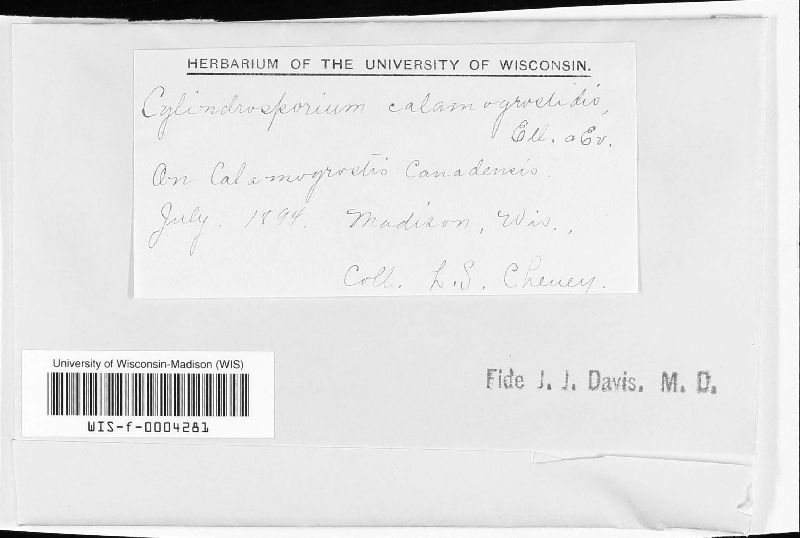 HERBARIUM OF THE UNIVERSITY OF WISCONSIN.
Cylindrosporium calamogrostidis,
Ell. & Ev.
On Calamogrostis Canadensis.
July. 1894. Madison, Wis.,
Coll. L.S. Cheney.
University of Wisconsin-Madison (WIS)
WIS-f-0004281
Fide J. J. Davis. M. D.